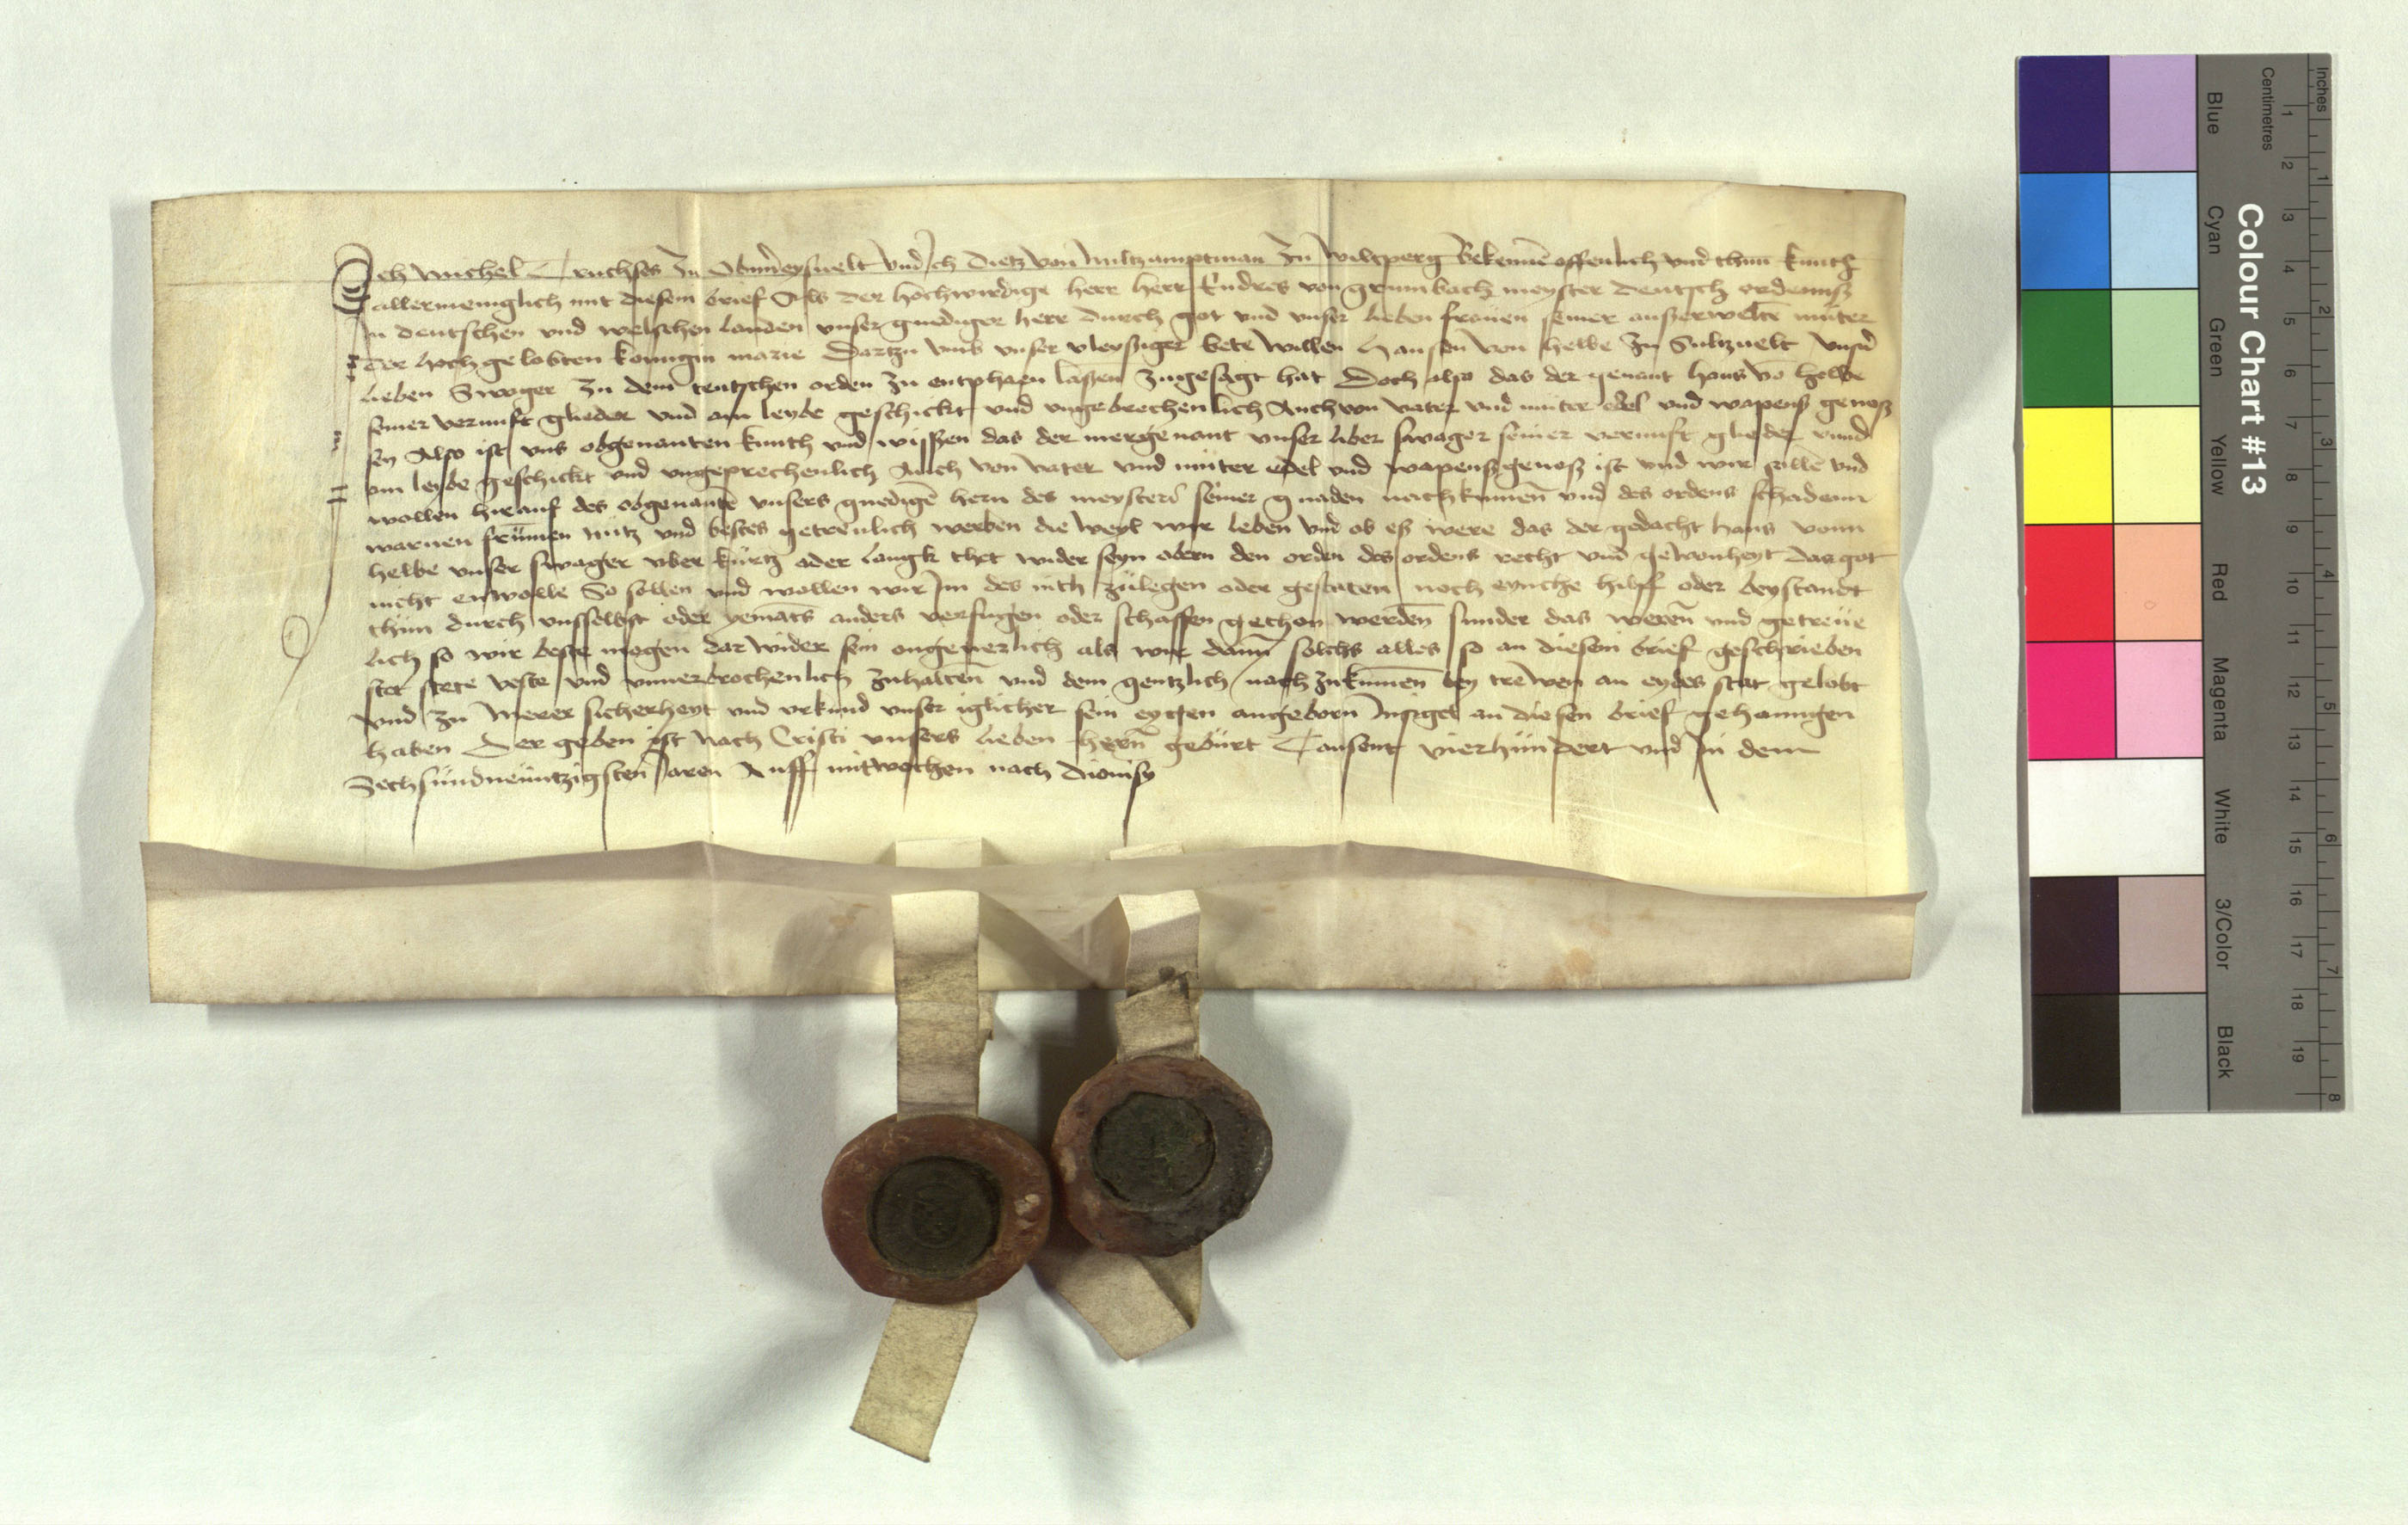 Ich Michel Truchses zu Vnnderysuelt vnd ich Dietz von miltz amptman zu wiltperg Bekennē offenlich vnd thun kunth
allermeniglich mit diesem brief Als der hochwirdige herr herr Endres von grumbach meyster deutsch ordennß
In deutschen vnd welschen landen vnser gnediger herr durch got vnd vnser lieben frauen seiner außerwelte muter
der hochgelobten konigin marie Dartzu vmb vnser vleyssiger bete willen hansen von helbe zu Sultzuelt vnsrn
lieben Swoger zu dem teutschen orden zu entphaen lassen zugesagt hat Doch also das der genant hans vō helbe
seiner vernuft glieder vnd am leybe geschickt vnd vngebrechenlich Auch von vater vnd muter edel vnd wapens genoß
sey Also ist vns obgenanten kunth vnd wissen das der mergenant vnser liber swager seiner vernuft glieder vnnd
am leybe geschickt vnd vngeprechenlich Auch von vater vnd muter edel vnd wapenßgenoß ist vnd wir sollē vnd
wollen hirauf des obgenantē vnsers gnedigē hern des meysters seiner gnaden nachkumen vnd des ordens schadenn
warnen frümen nütz vnd bestes getreulich werben die weyl wir leben vnd ob eß were das der gedacht hans vonn
helbe vnser swager vber kurtz oder langk thet wider seyn obern den orden des ordens recht vnd gewonheyt das got
nicht enwolle So sollen vnd wollen wir Im des nith zulegen oder gestaten noch eyniche hilff oder beystandt
thun durch vnsselbst oder yemāts anders verfugen oder schaffen gethon werden sunder das weren vnd getreue
lich so wir beste mogen dar wider sein ongeuerlich als wir dann solchs alles so an diesem brief geschrieben
stet stete veste vnd vnuerbrochenlich zuhalten vnd dem gentzlich nach zukumen bey trewen an eydes stat gelobt
vnd zu merer sicherheyt vnd vrkund vnser iglicher sein eygen angeborn Insigel an diesen brief gehanngen
haben Der geben ist nach Cristi vnsers lieben hern geburt Tausent vierhundert vnd in dem
Sechsundneuntzigsten Jaren Auff mitwochen nach dionisy
Colour Chart #13
Blue
Cyan
Green
Yellow
Red
Magenta
White
3/Color
Black
Inches
1
2
3
4
5
6
7
8
Centimetres
1
2
3
4
5
6
7
8
9
10
11
12
13
14
15
16
17
18
19